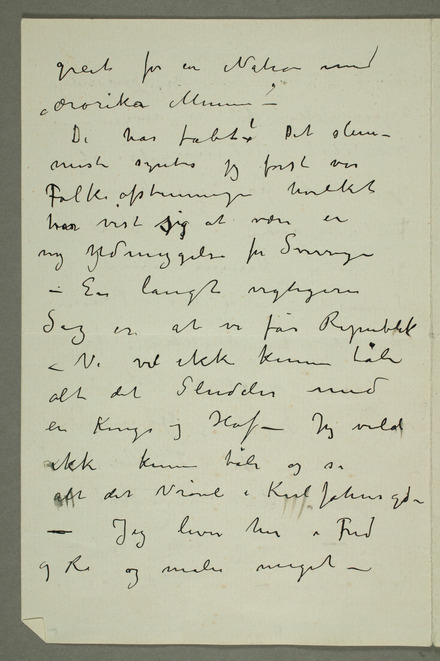 greit for en Nation med
ærerika Minner! –
De har tabt! Det slem–
meste syntes jeg først var
Folkeafstemningen hvilket
har vist sig at være en
ny Ydmygelse for Sverige
– En langt vigtigere
Sag er at vi får Republik
– Vi vil ikke kunne tåle
alt det Sludder med
en Konge og Hof – Jeg vilde
ikke kunne tåle og se
alt det Vrøvl i Karl Johans gd–
– Jeg lever her i Fred
og Ro og maler meget –